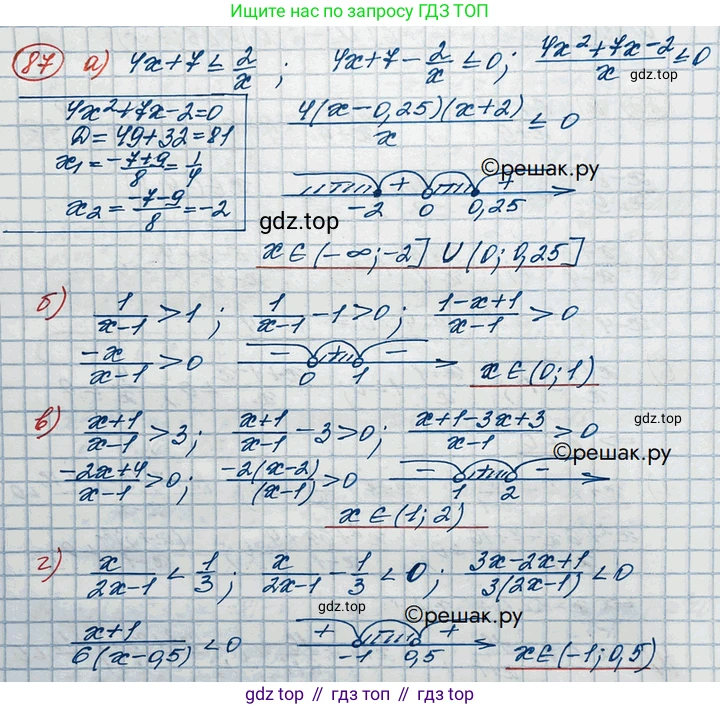 Ищите нас по запросу ГДЗ ТОП
87 а) 4x+7 ≤ 2/x ; 4x+7 - 2/x ≤ 0; (4x²+7x-2)/x ≤ 0
4x²+7x-2=0
D=49+32=81
x₁ = (-7+9)/8 = 1/4
x₂ = (-7-9)/8 = -2
4(x-0,25)(x+2)/x ≤ 0
+ +
-2 0 0,25
©решак.ру
gdz.top
x∈(-∞;-2] ∪ (0; 0,25]
б) 1/(x-1) > 1; 1/(x-1) - 1 > 0; (1-x+1)/(x-1) > 0
-x/(x-1) > 0 - + - x∈(0; 1)
0 1
в) (x+1)/(x-1) > 3; (x+1)/(x-1) - 3 > 0; (x+1-3x+3)/(x-1) > 0
gdz.top
©решак.ру
(-2x+4)/(x-1) > 0; -2(x-2)/(x-1) > 0 - + -
1 2
x∈(1; 2)
г) x/(2x-1) < 1/3; x/(2x-1) - 1/3 < 0; (3x-2x+1)/(3(2x-1)) < 0
gdz.top
©решак.ру
(x+1)/(6(x-0,5)) < 0 + - + x∈(-1; 0,5)
-1 0,5
gdz top // гдз топ // gdz.top